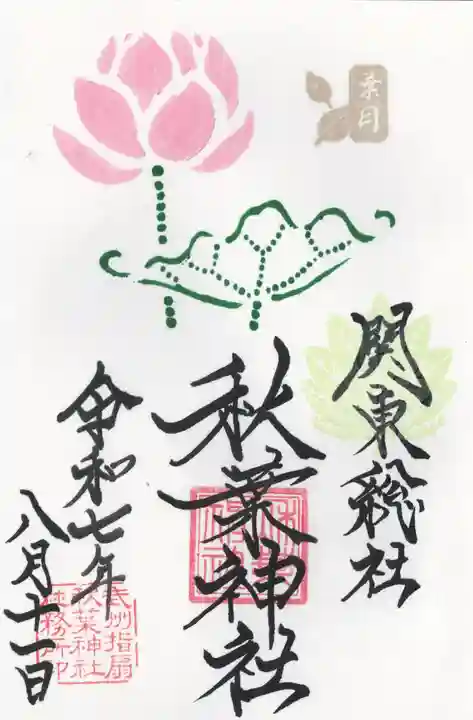 葉月
関東総社
秋葉神社
令和七年
八月十一日
武州指扇
秋葉神社
社務所印